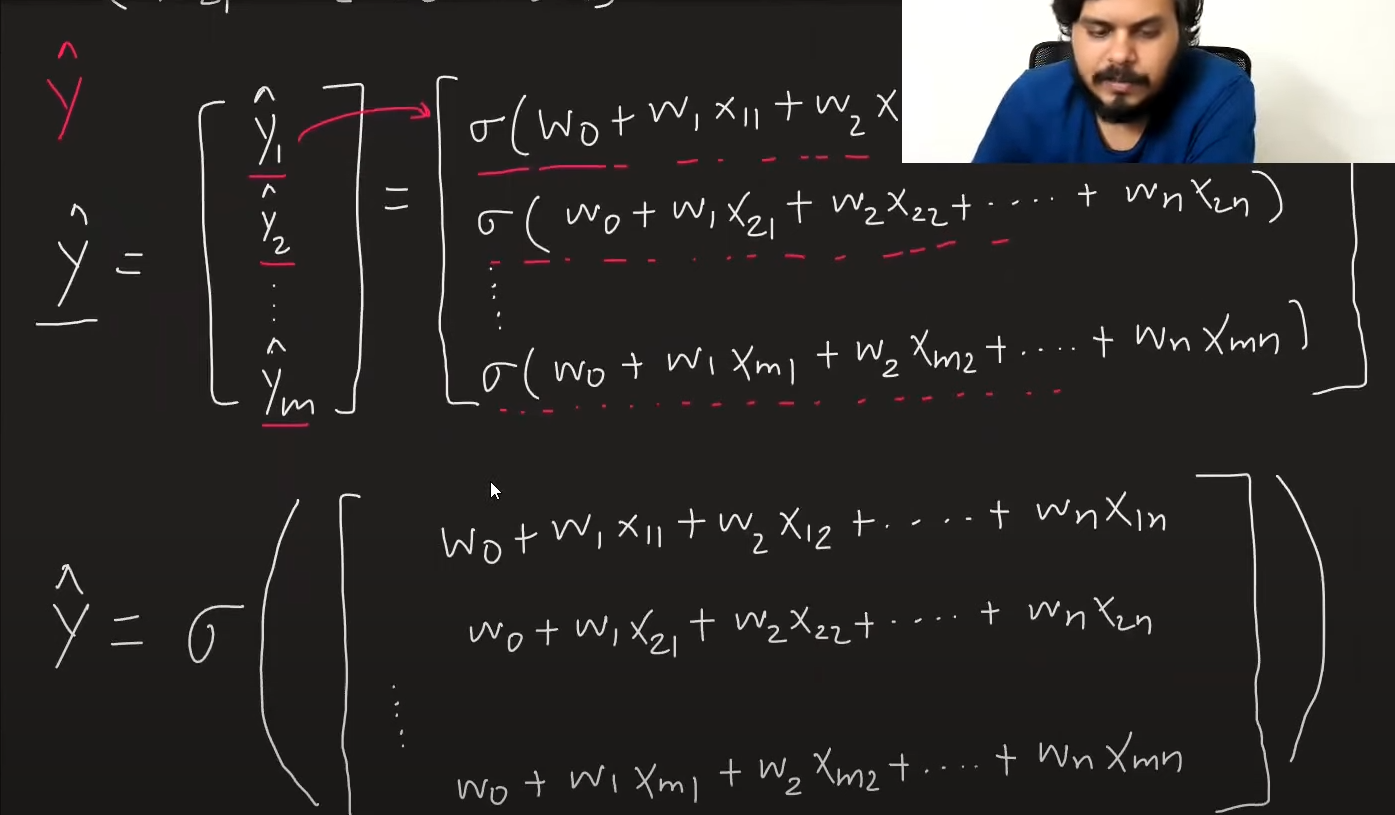 Ŷ
Ŷ = [ŷ₁ ŷ₂ ⋮ ŷₘ] = [
σ(w₀ + w₁ x₁₁ + w₂ x
σ( w₀ + w₁ x₂₁ + w₂ x₂₂ + ···· + wₙ x₂ₙ )
⋮
σ( w₀ + w₁ xₘ₁ + w₂ xₘ₂ + ···· + wₙ xₘₙ )
]
Ŷ = σ ( [
w₀ + w₁ x₁₁ + w₂ x₁₂ + ····· + wₙ x₁ₙ
w₀ + w₁ x₂₁ + w₂ x₂₂ + ····· + wₙ x₂ₙ
⋮
w₀ + w₁ xₘ₁ + w₂ xₘ₂ + ···· + wₙ xₘₙ
] )